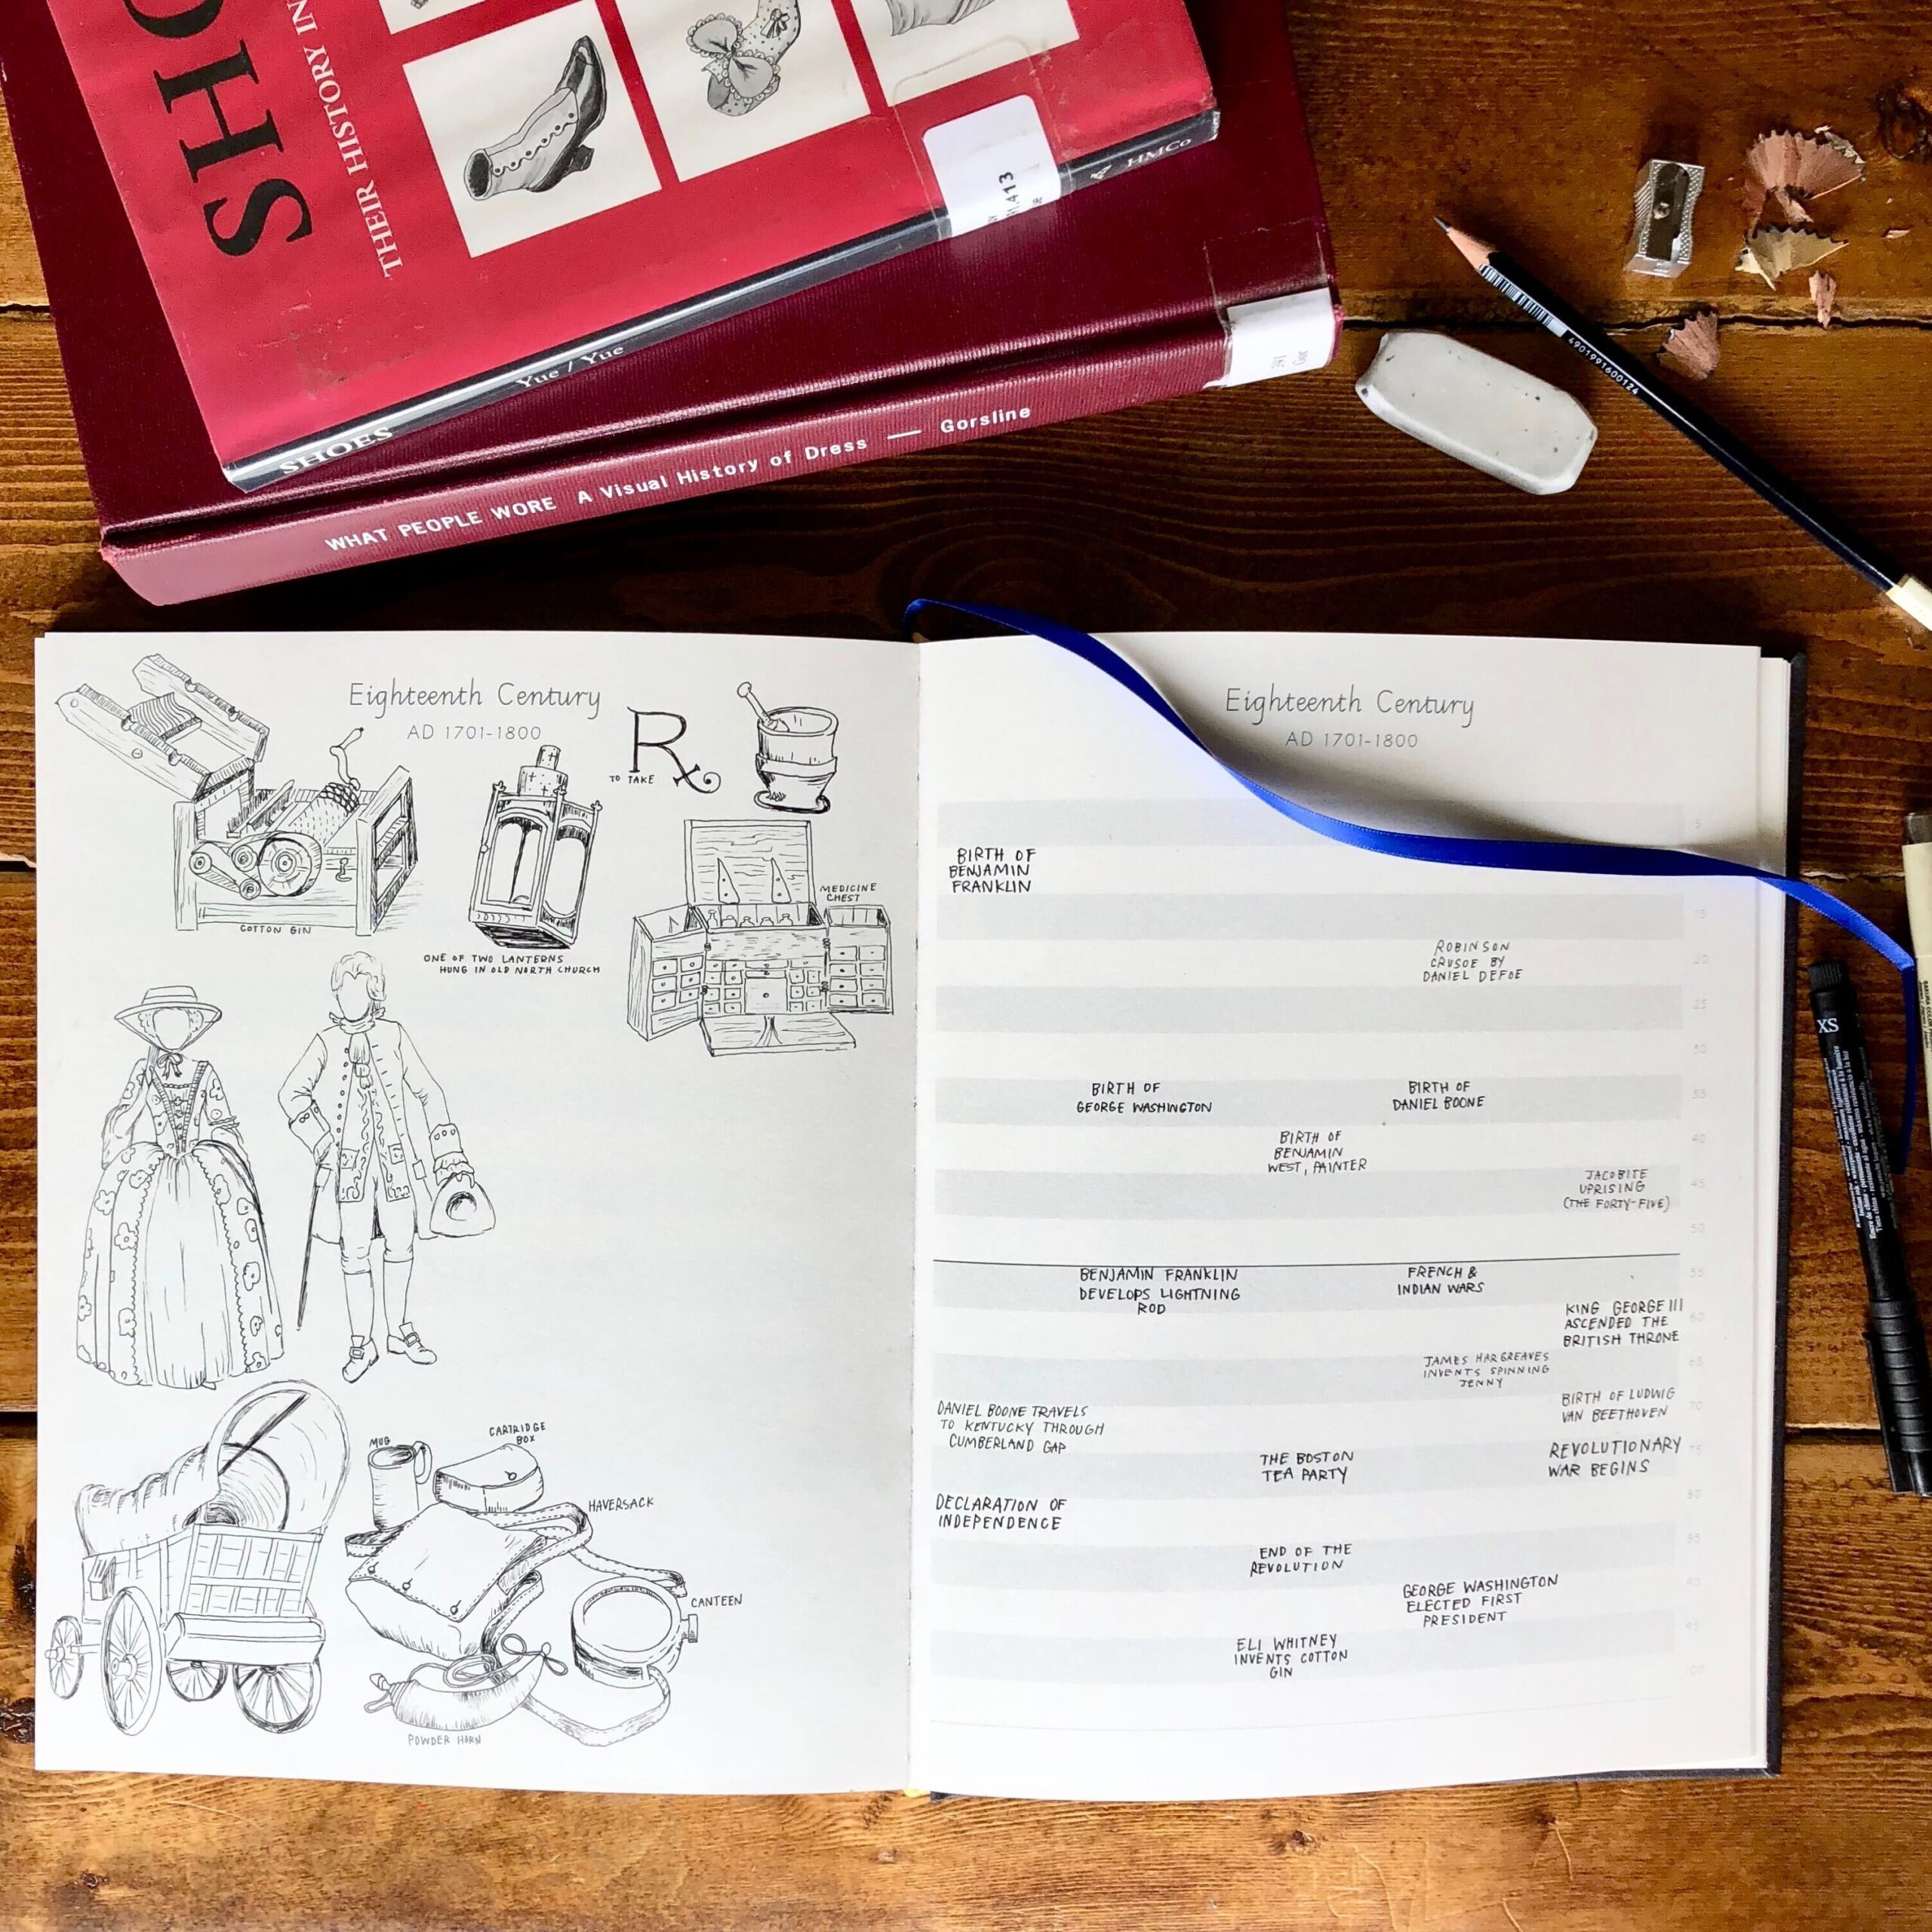 SHO
THEIR HISTORY IN
HMCo
SHOES
Yue / Yue
391
Gor
WHAT PEOPLE WORE A Visual History of Dress — Gorsline
4901991600124
Eighteenth Century
AD 1701-1800
TO TAKE
Rx
COTTON GIN
ONE OF TWO LANTERNS
HUNG IN OLD NORTH CHURCH
MEDICINE
CHEST
MUG
CARTRIDGE
BOX
HAVERSACK
CANTEEN
POWDER HORN
Eighteenth Century
AD 1701-1800
BIRTH OF
BENJAMIN
FRANKLIN
15
ROBINSON
CRUSOE BY
DANIEL DEFOE
20
25
BIRTH OF
GEORGE WASHINGTON
BIRTH OF
DANIEL BOONE
BIRTH OF
BENJAMIN
WEST, PAINTER
40
JACOBITE
UPRISING
(THE FORTY-FIVE)
45
50
BENJAMIN FRANKLIN
DEVELOPS LIGHTNING
ROD
FRENCH &
INDIAN WARS
55
KING GEORGE III
ASCENDED THE
BRITISH THRONE
60
JAMES HARGREAVES
INVENTS SPINNING
JENNY
65
BIRTH OF LUDWIG
VAN BEETHOVEN
70
DANIEL BOONE TRAVELS
TO KENTUCKY THROUGH
CUMBERLAND GAP
THE BOSTON
TEA PARTY
REVOLUTIONARY
WAR BEGINS
75
DECLARATION OF
INDEPENDENCE
80
END OF THE
REVOLUTION
85
GEORGE WASHINGTON
ELECTED FIRST
PRESIDENT
90
ELI WHITNEY
INVENTS COTTON
GIN
95
100
XS